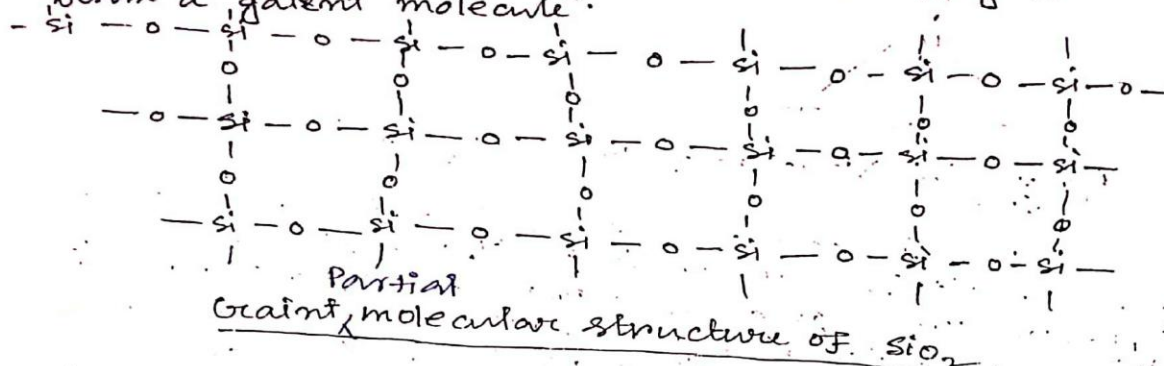 a gaient molecule.
- Si - o - Si - o - Si - o - Si - o - Si - o - Si - o - Si - o -
o o o o o o
- o - Si - o - Si - o - Si - o - Si - o - Si - o - Si -
o o o o o o
- Si - o - Si - o - Si - o - Si - o - Si - o - Si -
Partial
Graint molecular structure of SiO₂